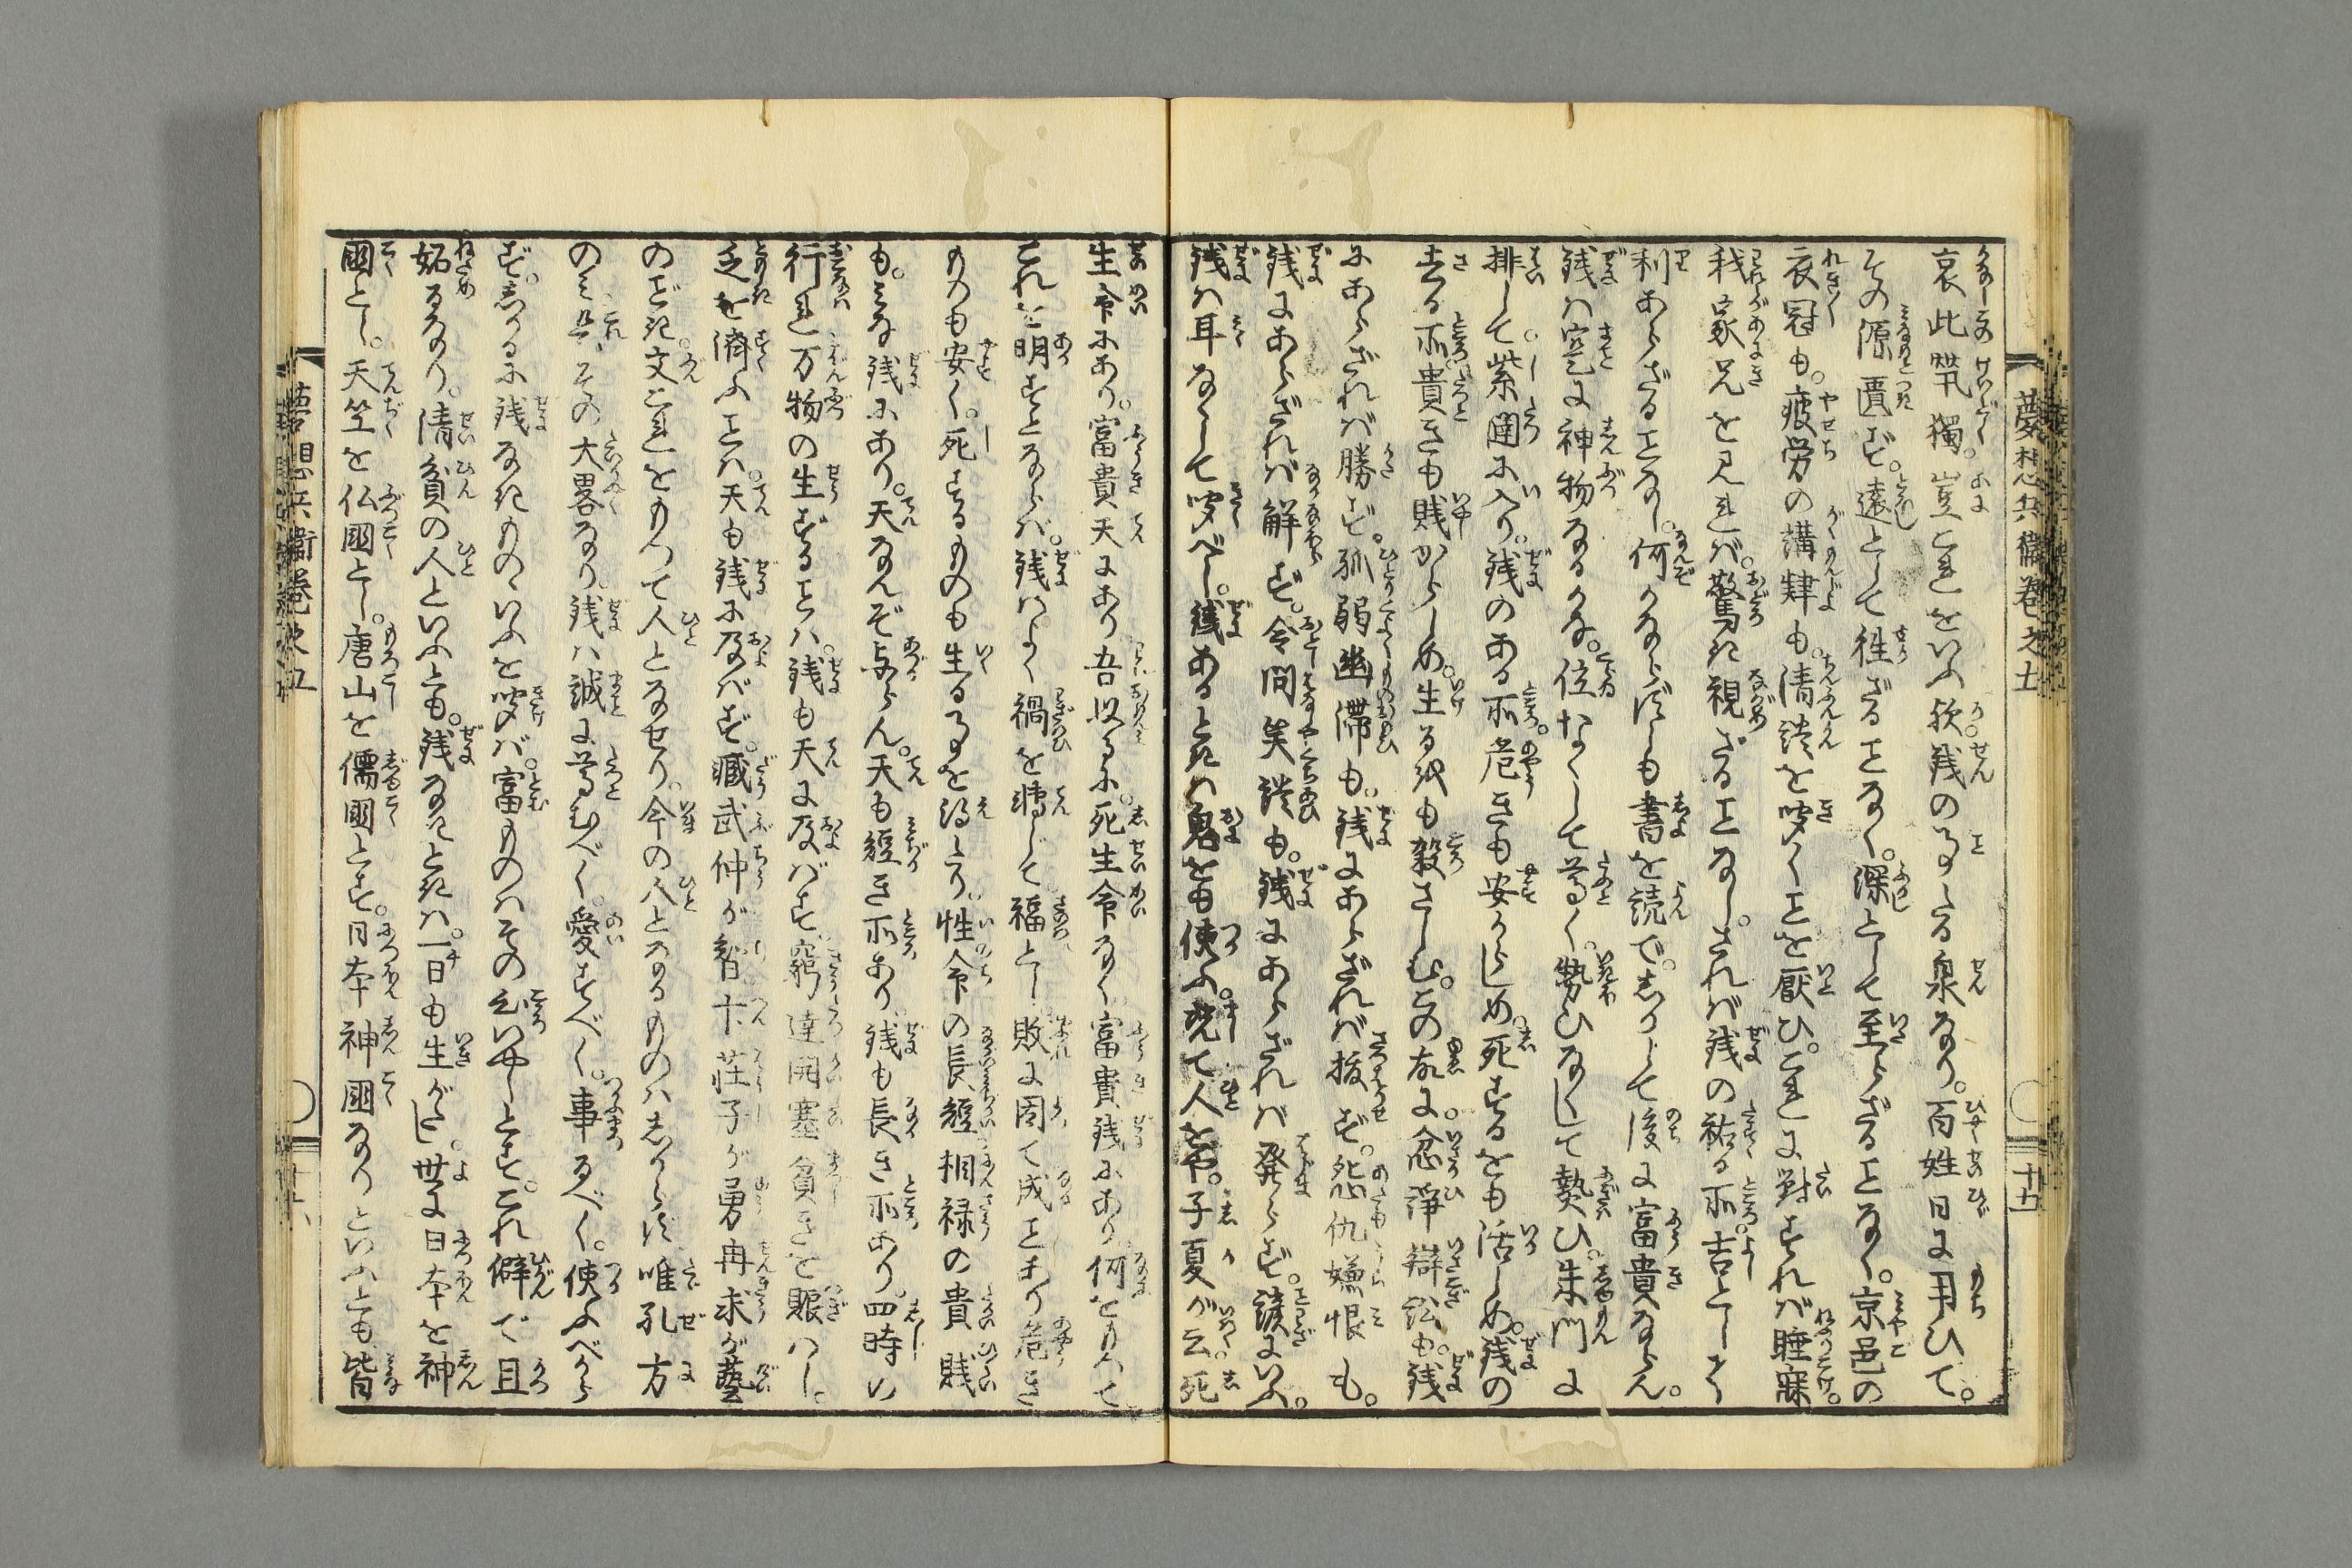 夢想兵衛巻之五
十五
哀此煢獨。豈これをいふ歟。銭の叓たる泉なり。百姓日に用ひて。
その源匱ず。遠として徃ざることなく。深として至らざることなく。京邑の
衣冠も。疲労の講肄も。清談を聴くことを厭ひ。これに對すれば睡寐
我家兄を見れば。驚き視ざることなし。されば銭の祐る所。吉として
利あらざることなし。何かならずしも書を読で。しかうして後に富貴ならん。
銭は寔に神物なるかな。位なくして尊く。勢ひなくして熱ひ。朱門に
排して。紫闥に入り。銭のある所。危きも安からしめ。死するをも活しめ。銭の
去る所。貴きも賎からしめ。生るをも殺さしむ。この故に。忿諍辯訟も。銭
にあらざれば勝ず。孤弱幽滞も。銭にあらざれば抜ず。怨仇嫌恨も。
銭にあらざれば解ず。令問笑談も。銭にあらざれば発らず。諺にいふ。
銭は耳なくして聴べし。銭あるときは鬼をも使ふ。况て人をや。子夏が云死
生命にあり。富貴天にあり。吾以るに。死生命なく。富貴銭にあり。何をもつて
これを明すとならば。銭はよく禍を轉じて福とし。敗に因て成ことあり。危き
ものも安く。死するものも生る事を得たり。性命の長短。相禄の貴賎
も。みな銭にあり。天なんぞ与らん。天も短き所あり。銭も長き所あり。四時の
行れ万物の生ずることは。銭も天に及ばず。窮達開塞貧きを賑はし。
乏を濟ふことは。天も銭に及ばず。臧武仲が智卞荘子が勇冉求が藝
のごき。文これをもつて人となせり。今の人となるものはしからず唯孔方
のミと。これその大畧なり。銭は誠に尊むべく。愛すべく。事るべく。使ふべから
ず。しかるに銭なきものゝいふを聴けば。富ものはその心いやしとす。これ僻で且
妬るなり。清貧の人といふとも。銭なきときは。一日も生がたし。世に日本を神
國とし。天竺を仏國とし。唐山を儒國とす。日本神國なりといふとも。皆
夢想兵衛巻之五
十六